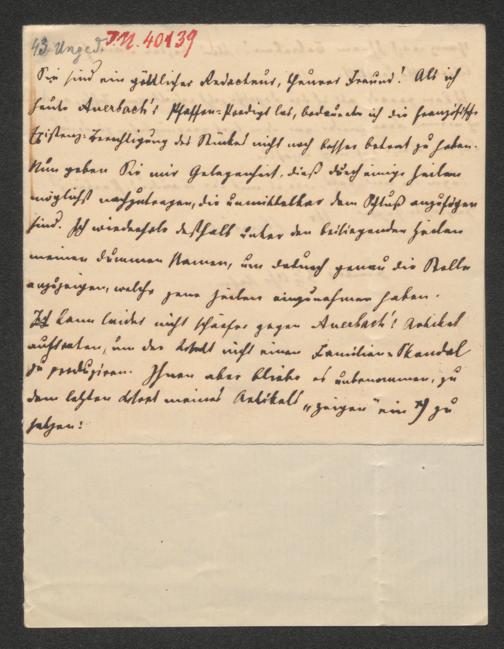 43 Unged. J.N. 40139
Sie sind ein göttlicher Redacteur, theurer Freund! Als ich
heute Auerbach's Pfaffen-Predigt las, bedauerte ich die französische
Existenz-Berechtigung des Stückes nicht noch besser betont zu haben.
Nun geben Sie mir Gelegenheit, dieß durch einige Zeilen
möglichst nachzutragen, die unmittelbar dem Schluß anzufügen
sind. Ich wiederhole deßhalb unter den beiliegenden Zeilen
meinen dummen Namen, um dadurch genau die Stelle
anzuzeigen, welche jene Zeilen einzunehmen haben.
Ich kann leider nicht schärfer gegen Auerbach's Artikel
auftreten, um der Welt nicht einen Familien-Skandal
zu produziren. Ihnen aber bliebe es unbenommen, zu
dem letzten Wort meines Artikels „zeigen" ein *) zu
setzen: